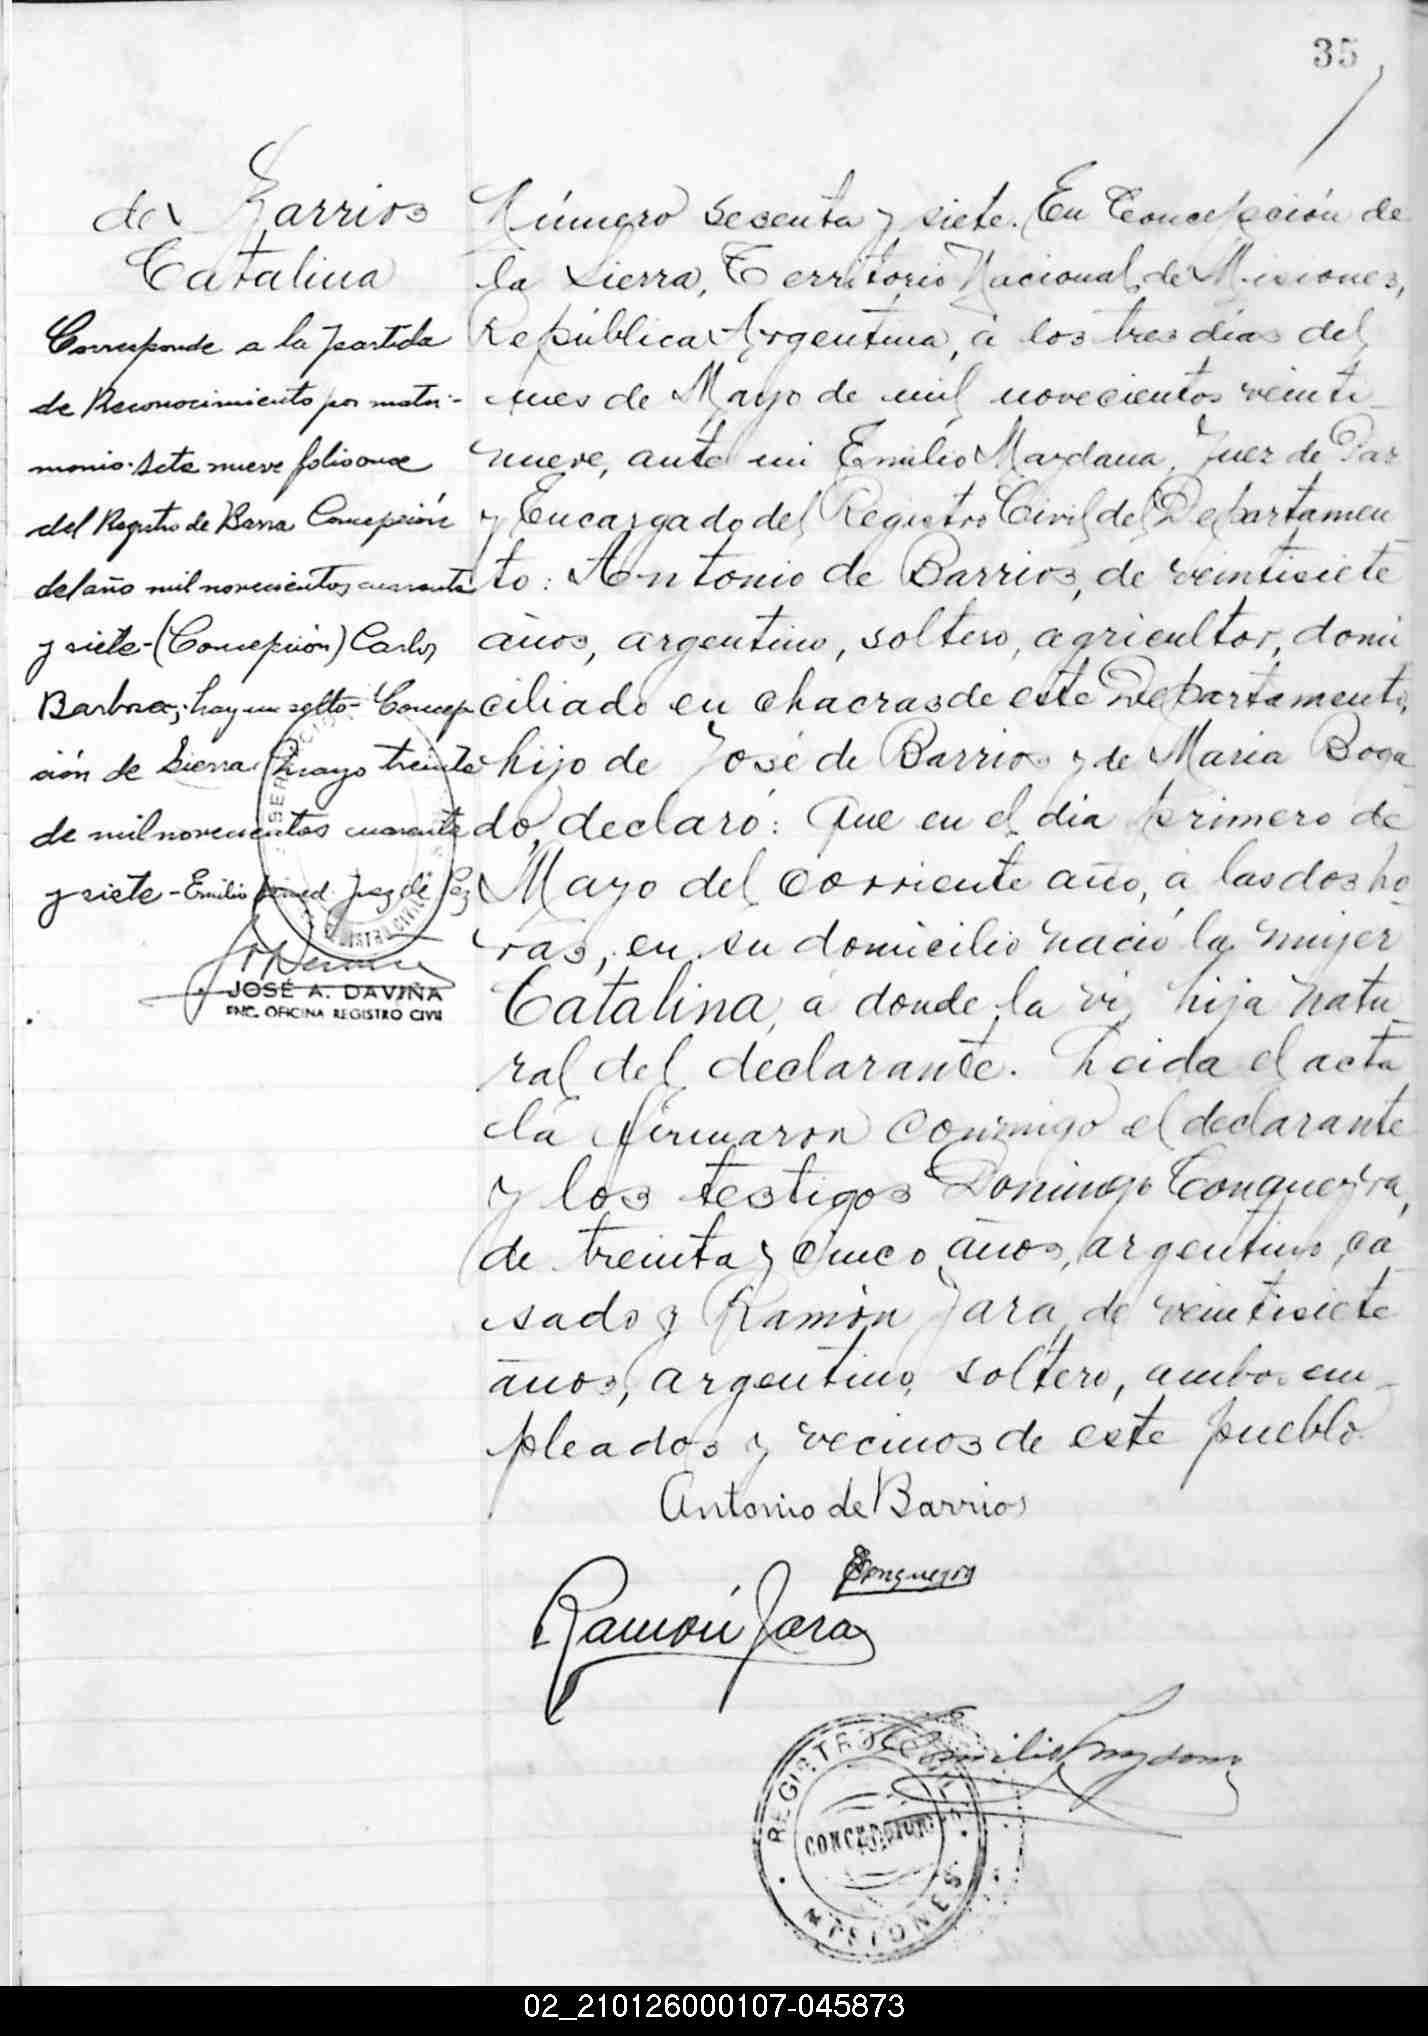 35
de Barrios
Catalina
Corresponde a la partida
de Reconocimiento por matri-
monio. Acta nueve folio once
del Registro de Barra Concepción
del año mil novecientos cuarenta
y siete-(Concepción) Carlos
Barboza; hay un sello- Concep
ción de Sierra Mayo treinta
de mil novecientos cuarenta
y siete - Emilio Juez de Paz
JOSÉ A. DAVIÑA
ENC. OFICINA REGISTRO CIVIL
Número sesenta y siete. En Concepción de
la Sierra, Territorio Nacional de Misiones,
República Argentina, á los tres días del
mes de Mayo de mil novecientos veinti-
nueve, ante mi Emilio Maydana, Juez de Paz
y Encargado del Registro Civil del Departamen
to: Antonio de Barrios, de veintisiete
años, argentino, soltero, agricultor, domi
ciliado en chacras de este Departamento,
hijo de José de Barrios y de Maria Boga
do, declaró: Que en el dia primero de
Mayo del corriente año, á las dos ho
ras, en su domicilio nació la mujer
Catalina, á donde la vi, hija natu
ral del declarante. Leida el acta
la firmaron conmigo el declarante
y los testigos Domingo Conqueyra,
de treinta y cinco años, argentino, ca
sado y Ramón Jara, de veintisiete
años, argentino, soltero, ambos em-
pleados y vecinos de este pueblo.
Antonio de Barrios
Ramón Jara
Emilio Maydana
REGISTRO CIVIL
CONCEPCION
MISIONES
02_210126000107-045873